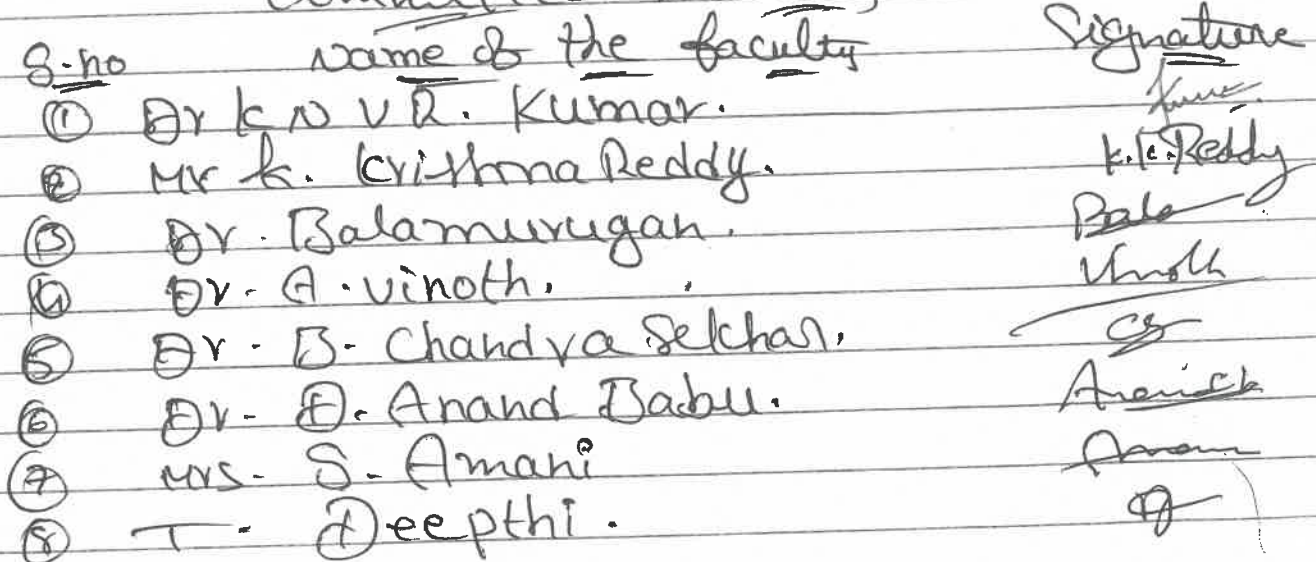 S.no Name of the faculty Signature
① Dr K N V R. Kumar.
② Mr K. Krishna Reddy. K.K.Reddy
③ Dr. Balamurugan. Bala
④ Dr. A. Vinoth. Vinoth
⑤ Dr. B. Chandra Sekhar. CS
⑥ Dr. D. Anand Babu.
⑦ Mrs. S. Amani
⑧ T. Deepthi.